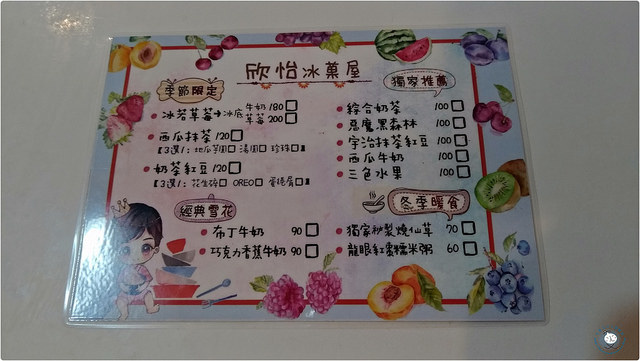 欣怡冰菓屋
季節限定
冰若草莓→冰底 牛奶/180□
草莓200□
西瓜抹茶/120□
【3選1: 地瓜芋圓□ 湯圓□ 珍珠□】
奶茶紅豆/120□
【3選1: 花生碎□ OREO□ 蛋捲屑□】
經典雪花
布丁牛奶 90□
巧克力香蕉牛奶 90□
獨家推薦
綜合奶茶 100□
惡魔黑森林 100□
宇治抹茶紅豆 100□
西瓜牛奶 100□
三色水果 100□
冬季暖食
獨家秘製燒仙草 70□
龍眼紅棗糯米粥 60□